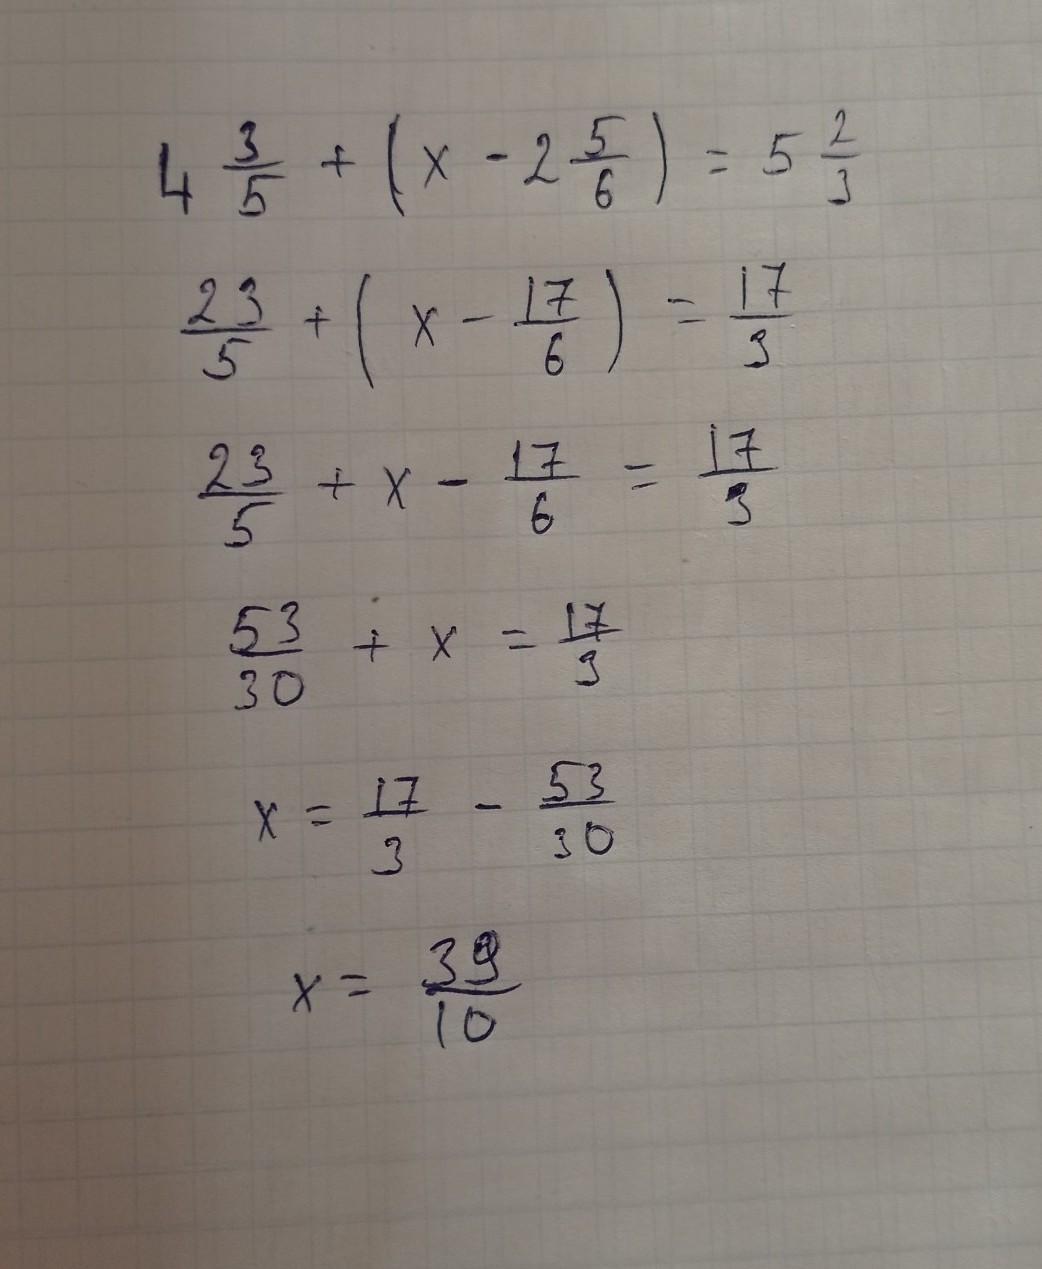 4 3/5 + (x - 2 5/6) = 5 2/3
23/5 + (x - 17/6) = 17/3
23/5 + x - 17/6 = 17/3
53/30 + x = 17/3
x = 17/3 - 53/30
x = 39/10